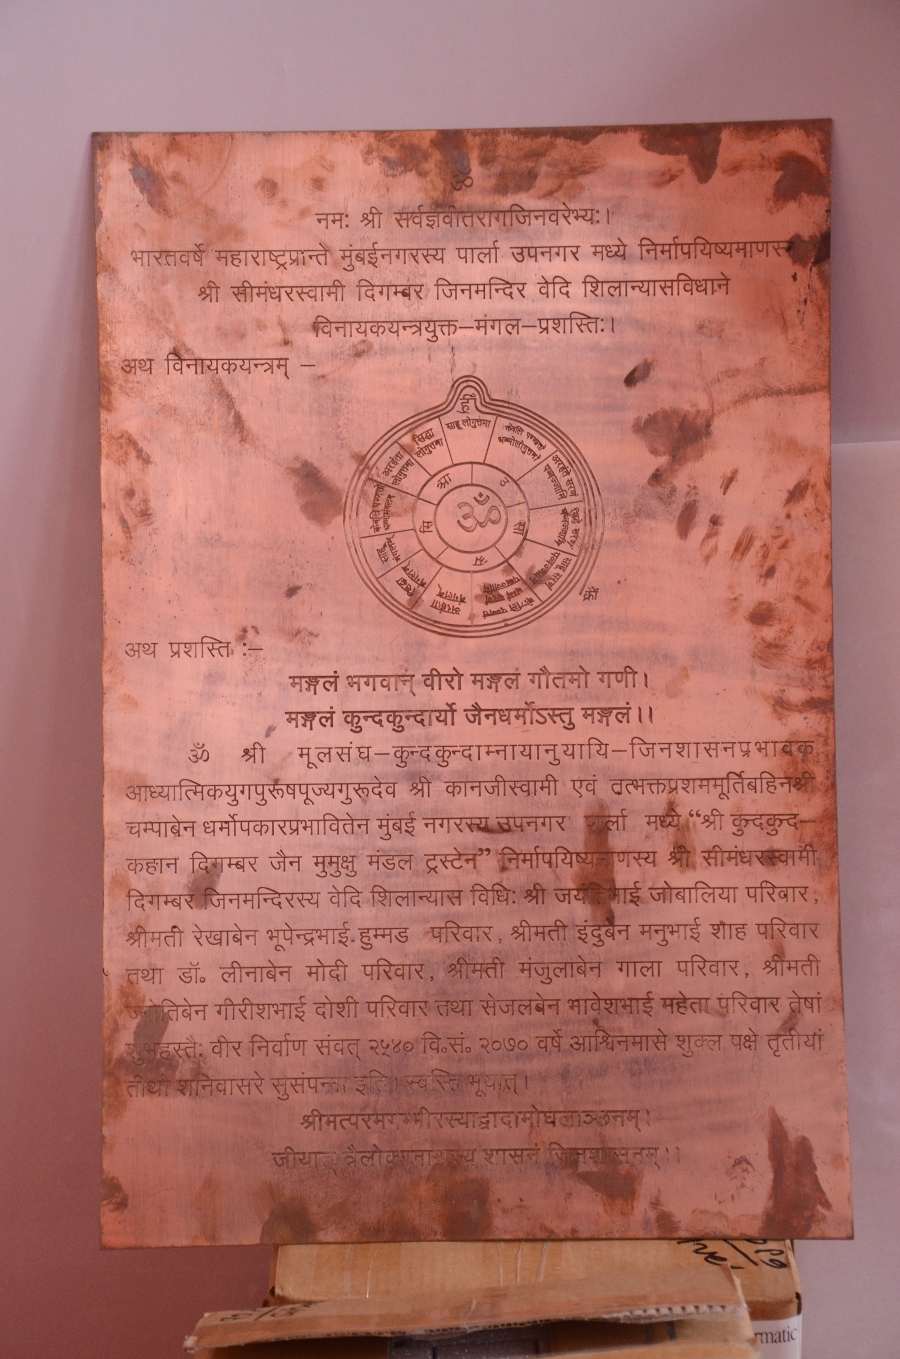 ॐ
नमः श्री सर्वज्ञवीतरागजिनवरेभ्यः।
भारतवर्षे महाराष्ट्रप्रान्ते मुंबईनगरस्य पार्ला उपनगर मध्ये निर्मापयिष्यमाणस्य
श्री सीमंधरस्वामी दिगम्बर जिनमन्दिर वेदि शिलान्यासविधाने
विनायकयन्त्रयुक्त–मंगल–प्रशस्तिः।
अथ विनायकयन्त्रम् –
साहू लोगुत्तमा
सिद्धा लोगुत्तमा
अरहंता लोगुत्तमा
ॐ
अथ प्रशस्ति :–
मङ्गलं भगवान् वीरो मङ्गलं गौतमो गणी।
मङ्गलं कुन्दकुन्दार्यो जैनधर्मोऽस्तु मङ्गलं।।
ॐ श्री मूलसंघ–कुन्दकुन्दाम्नायानुयायि–जिनशासनप्रभावक
आध्यात्मिकयुगपुरूषपूज्यगुरूदेव श्री कानजीस्वामी एवं तत्भक्तप्रशममूर्तिबहिनश्री
चम्पाबेन धर्मोपकारप्रभावितेन मुंबई नगरस्य उपनगर पार्ला मध्ये “श्री कुन्दकुन्द–
कहान दिगम्बर जैन मुमुक्षु मंडल ट्रस्टेन” निर्मापयिष्यमाणस्य श्री सीमंधरस्वामी
दिगम्बर जिनमन्दिरस्य वेदि शिलान्यास विधिः श्री जयंतिभाई जोबालिया परिवार,
श्रीमती रेखाबेन भूपेन्द्रभाई हुम्मड परिवार, श्रीमती इंदुबेन मनुभाई शाह परिवार
तथा डॉ॰ लीनाबेन मोदी परिवार, श्रीमती मंजुलाबेन गाला परिवार, श्रीमती
ज्योतिबेन गीरीशभाई दोशी परिवार तथा सेजलबेन भावेशभाई महेता परिवार तेषां
शुभहस्तैः वीर निर्वाण संवत् २५४० वि॰सं॰ २०७० वर्षे आश्विनमासे शुक्ल पक्षे तृतीयां
तीथौ शनिवासरे सुसंपन्ता इति। स्वस्ति भूयात्।
श्रीमत्परमगम्भीरस्याद्वादामोघलाञ्छनम्।
जीयात् त्रैलोक्यनाथस्य शासनं जिनशासनम्।।
rmatic